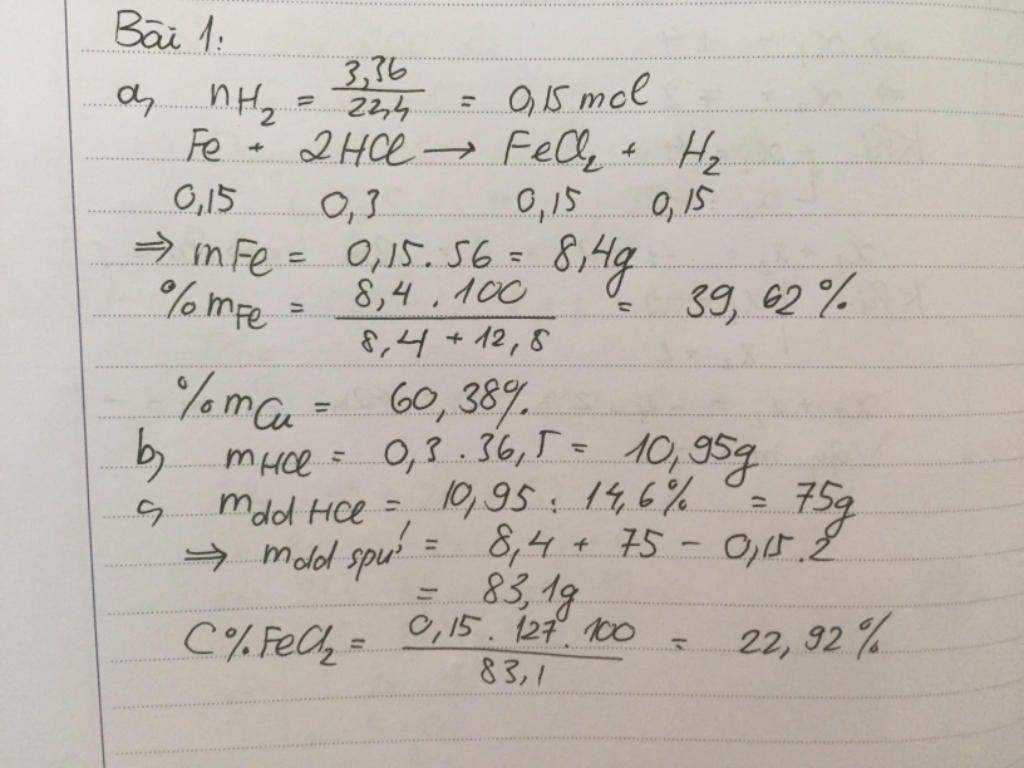 Bài 1:
a, nH₂ = 3,36/22,4 = 0,15 mol
Fe + 2HCl → FeCl₂ + H₂
0,15 0,3 0,15 0,15
⇒ mFe = 0,15.56 = 8,4g
%mFe = 8,4.100/8,4+12,8 = 39,62%
%mCu = 60,38%.
b, mHCl = 0,3.36,5 = 10,95g
c, mdd HCl = 10,95 : 14,6% = 75g
⇒ mdd spư = 8,4 + 75 - 0,15.2
= 83,1g
C%FeCl₂ = 0,15.127.100/83,1 = 22,92%